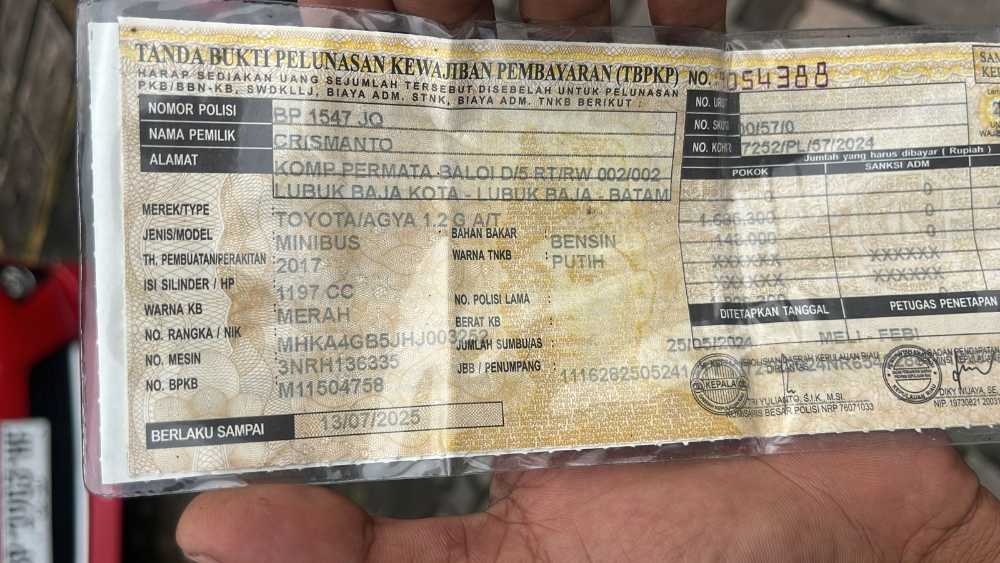 TANDA BUKTI PELUNASAN KEWAJIBAN PEMBAYARAN (TBPKP)
HARAP SEDIAKAN UANG SEJUMLAH TERSEBUT DISEBELAH UNTUK PELUNASAN
PKB/BBN-KB, SWDKLLJ, BIAYA ADM. STNK, BIAYA ADM. TNKB BERIKUT :
NOMOR POLISI BP 1547 JQ
NAMA PEMILIK CRISMANTO
ALAMAT KOMP PERMATA BALOI D/5 RT/RW 002/002
LUBUK BAJA KOTA - LUBUK BAJA - BATAM
MEREK/TYPE TOYOTA/AGYA 1.2 G A/T
JENIS/MODEL MINIBUS
TH. PEMBUATAN/PERAKITAN 2017
ISI SILINDER / HP 1197 CC
WARNA KB MERAH
NO. RANGKA / NIK MHKA4GB5JHJ003252
NO. MESIN 3NRH136335
NO. BPKB M11504758
BERLAKU SAMPAI 13/07/2025
BAHAN BAKAR : BENSIN
WARNA TNKB : PUTIH
NO. POLISI LAMA :
BERAT KB :
JUMLAH SUMBU/AS :
JBB / PENUMPANG :
1116282505241
NO. 054388
NO. URUT
NO. SKUM 00/57/0
NO. KOHIR 7252/PL/57/2024
Jumlah yang harus dibayar ( Rupiah )
POKOK SANKSI ADM
0
0
1.686.300 0
143.000 0
XXXXXX XXXXXX
XXXXXX XXXXXX
DITETAPKAN TANGGAL PETUGAS PENETAPAN
25/05/2024 MELL FEBI
KEPOLISIAN DAERAH KEPULAUAN RIAU
BADAN PENDAPATAN
KEPALA
TRI YULIANTO, S.I.K, M.SI
KOMISARIS BESAR POLISI NRP 76071033
DIKY WIJAYA, SE